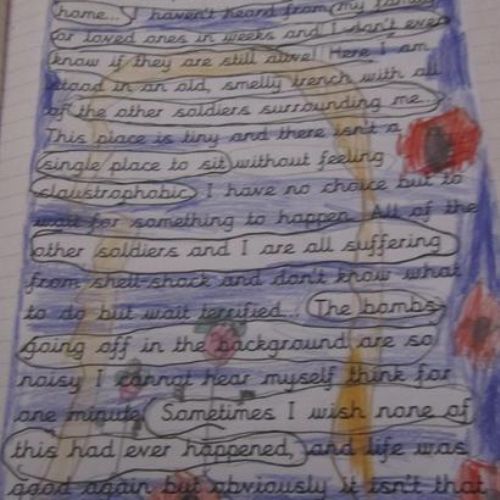 home... I haven't heard from my family
or loved ones in weeks and I don't even
know if they are still alive! Here I am
stood in an old, smelly trench with all
of the other soldiers surrounding me...
This place is tiny and there isn't a
single place to sit without feeling
claustrophobic. I have no choice but to
wait for something to happen. All of the
other soldiers and I are all suffering
from shell-shock and don't know what
to do but wait terrified... The bombs
going off in the background are so
noisy I cannot hear myself think for
one minute. Sometimes I wish none of
this had ever happened, and life was
good again but obviously it isn't that